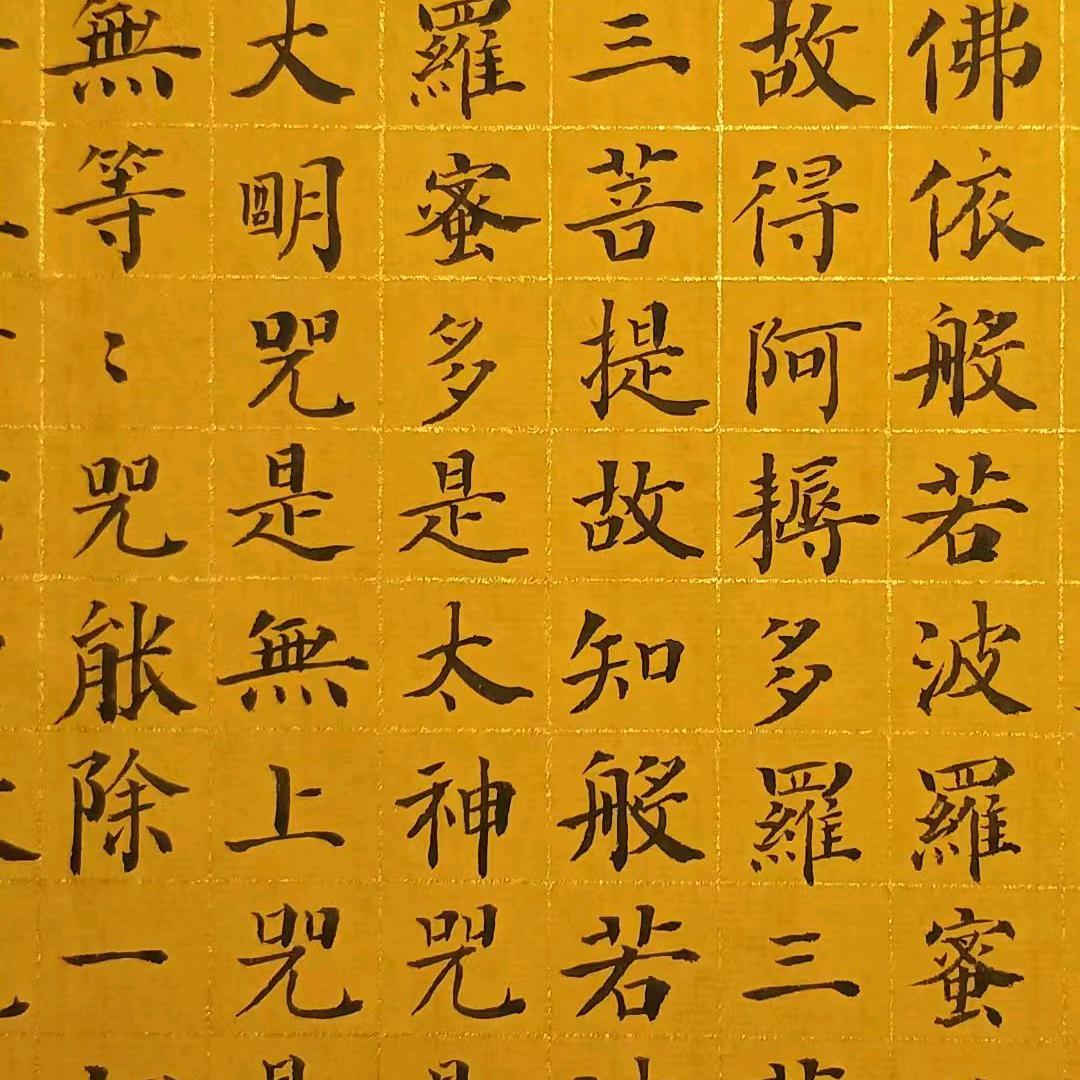 佛依般若波羅蜜
故得阿耨多羅三
三菩提故知般若
羅蜜多是太神咒
大朙咒是無上咒
無等〻咒能除一